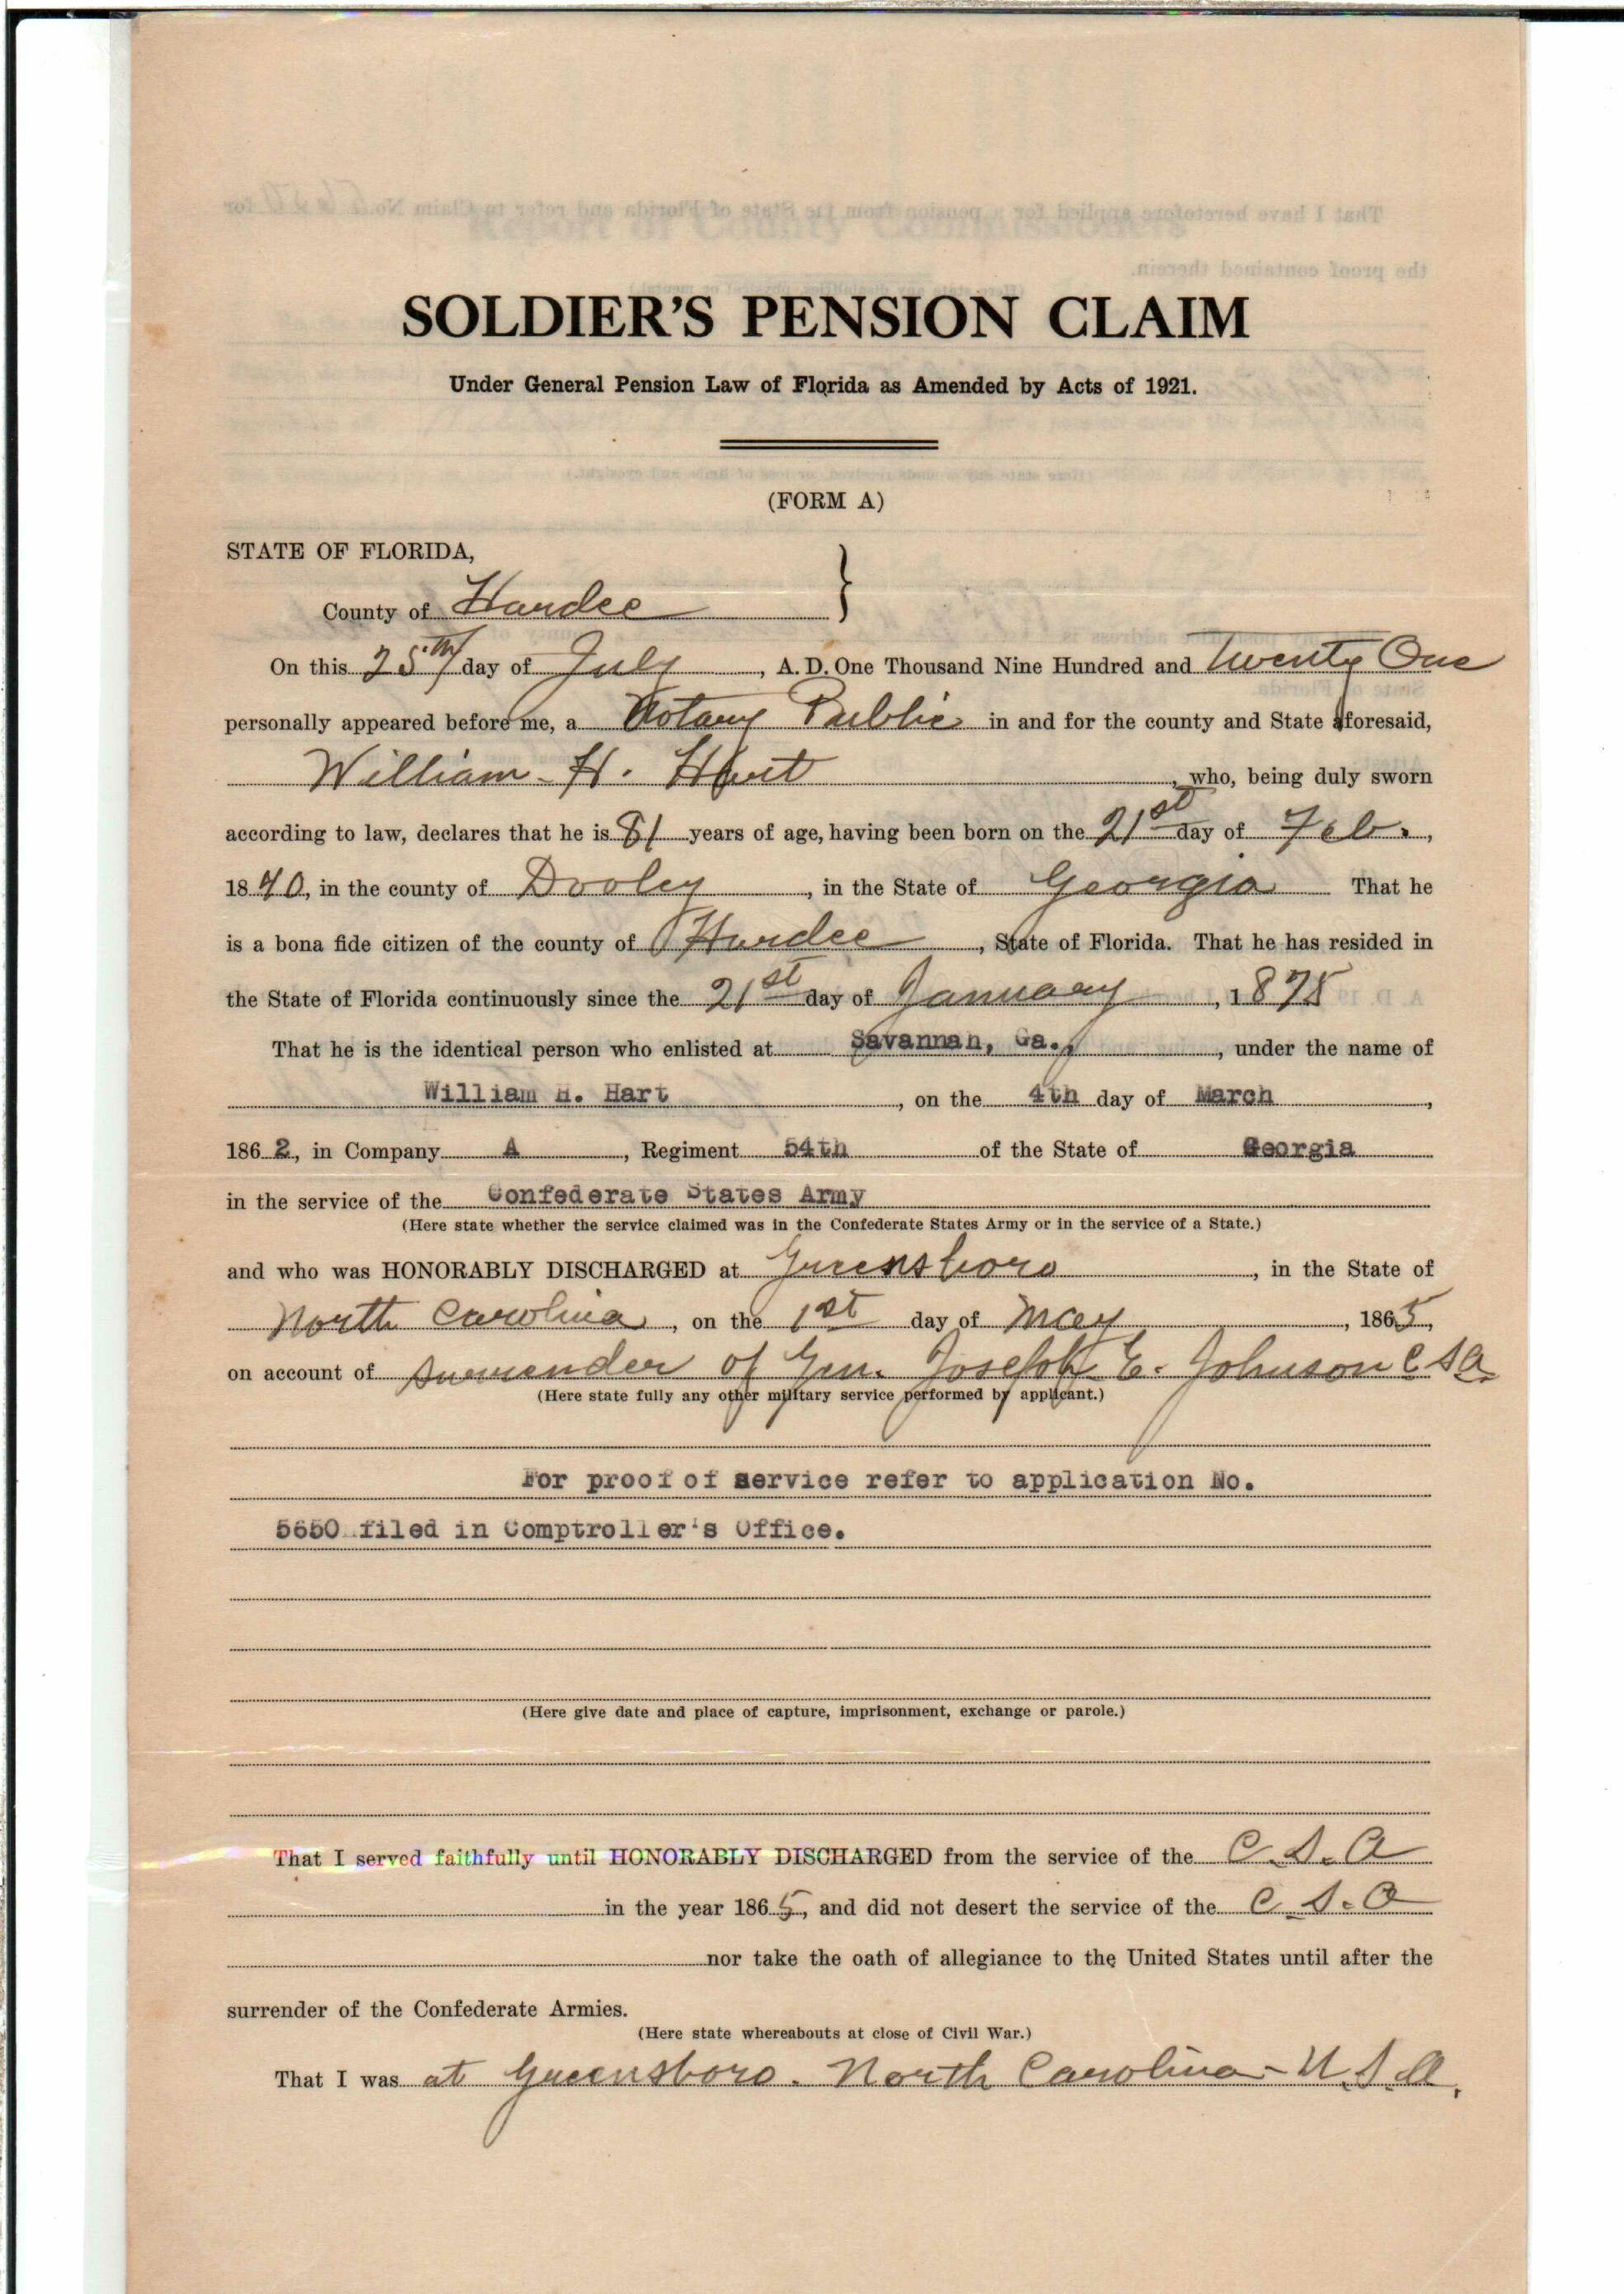 SOLDIER'S PENSION CLAIM
Under General Pension Law of Florida as Amended by Acts of 1921.
(FORM A)
STATE OF FLORIDA,
County of Hardee
On this 25th day of July, A. D. One Thousand Nine Hundred and Twenty One
personally appeared before me, a Notary Public in and for the county and State aforesaid,
William H. Hart, who, being duly sworn
according to law, declares that he is 81 years of age, having been born on the 21st day of Feb.,
1840, in the county of Dooley, in the State of Georgia That he
is a bona fide citizen of the county of Hardee, State of Florida. That he has resided in
the State of Florida continuously since the 21st day of January, 1875
That he is the identical person who enlisted at Savannah, Ga., under the name of
William H. Hart, on the 4th day of March,
1862, in Company A, Regiment 54th of the State of Georgia
in the service of the Confederate States Army
(Here state whether the service claimed was in the Confederate States Army or in the service of a State.)
and who was HONORABLY DISCHARGED at Greensboro, in the State of
North Carolina, on the 1st day of May, 1865,
on account of surrender of Gen. Joseph E. Johnson C S A.
(Here state fully any other military service performed by applicant.)
For proof of service refer to application No.
5650 filed in Comptroller's Office.
(Here give date and place of capture, imprisonment, exchange or parole.)
That I served faithfully until HONORABLY DISCHARGED from the service of the C. S. A
in the year 1865, and did not desert the service of the C. S. A
nor take the oath of allegiance to the United States until after the
surrender of the Confederate Armies.
(Here state whereabouts at close of Civil War.)
That I was at Greensboro. North Carolina - U. S. A.